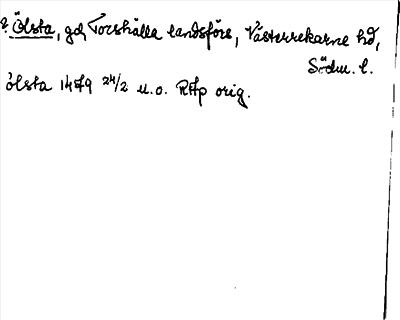 ? Ölsta, gd, Torshälla landsförs, Västerrekarne hd,
Södm. l.
ölsta 1479 24/2 u.o. RAp orig.